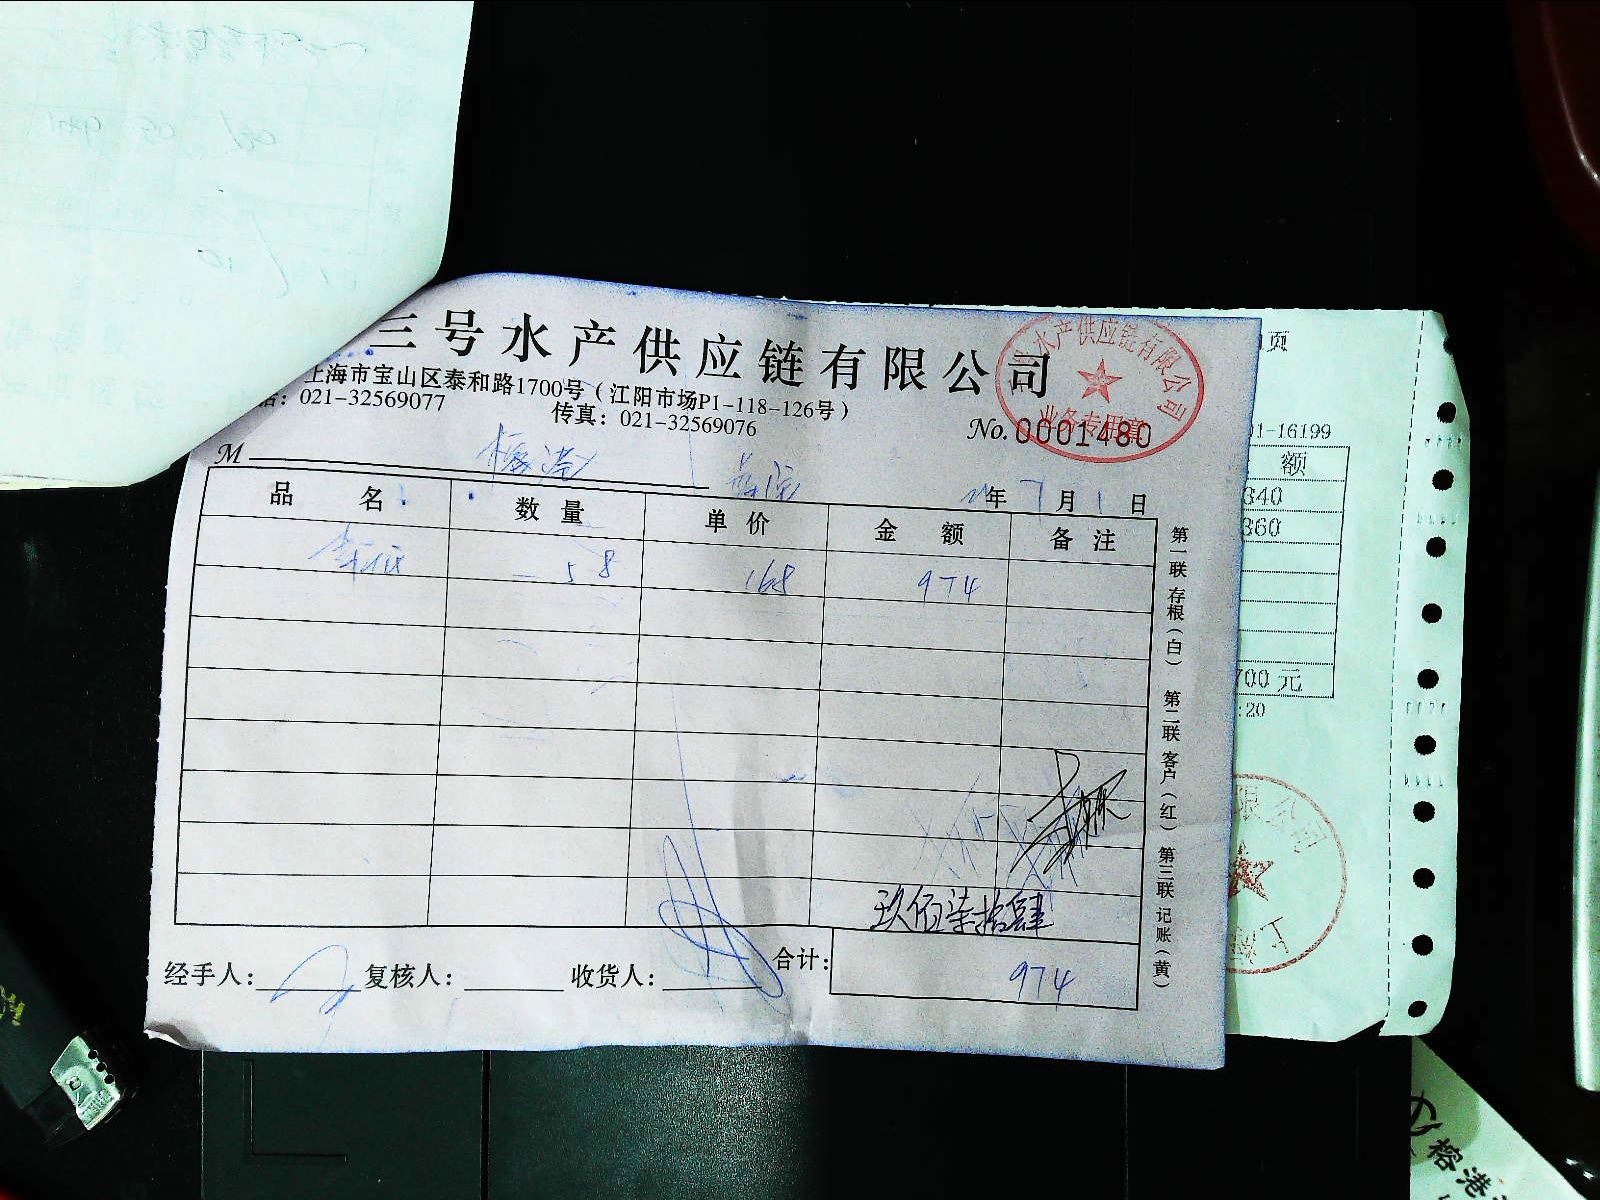 三号水产供应链有限公司
上海市宝山区泰和路1700号（江阳市场P1-118-126号）
话：021-32569077 传真：021-32569076
水产供应链有限公司
业务专用章
No.0001480
M 榕港
年 7 月 1 日
品 名 数 量 单 价 金 额 备 注
58 168 974
玖佰柒拾肆
合计： 974
经手人： 复核人： 收货人：
第一联 存根（白） 第二联 客户（红） 第三联 记账（黄）
页
01-16199
额
340
360
700 元
:20
限公司
榕港